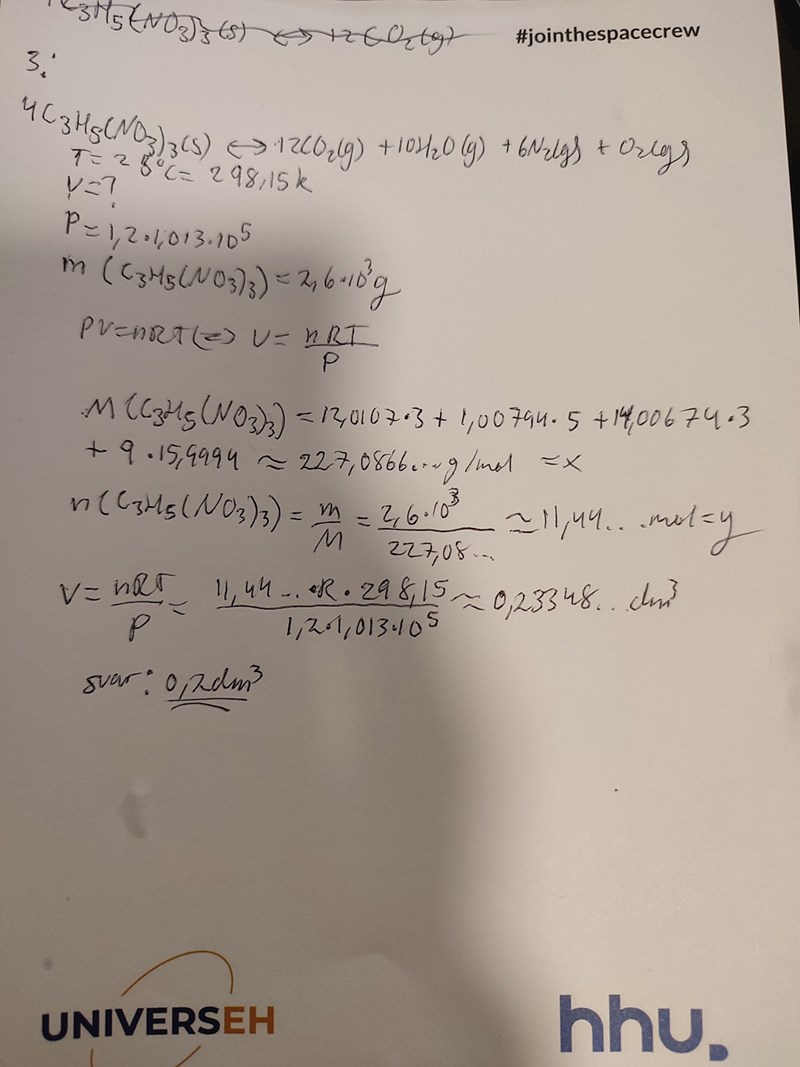 C₃H₅(NO₃)₃(s) <-> 12CO₂(g)
#jointhespacecrew
3.:
4C₃H₅(NO₃)₃(s) <-> 12CO₂(g) + 10H₂O(g) + 6N₂(g) + O₂(g)
T = 25°C = 298,15 k
V = ?
P = 1,2·1,013·10⁵
m (C₃H₅(NO₃)₃) = 2,6·10³ g
PV = nRT <=> V = nRT/P
M(C₃H₅(NO₃)₃) = 12,0107·3 + 1,00794·5 + 14,00674·3
+ 9·15,9994 ≈ 227,0866... g/mol = x
n(C₃H₅(NO₃)₃) = m/M = 2,6·10³/227,08... ≈ 11,44... mol = y
V = nRT/P = 11,44...·R·298,15/1,2·1,013·10⁵ ≈ 0,23348... dm³
svar: 0,2dm³
UNIVERSEH
hhu.